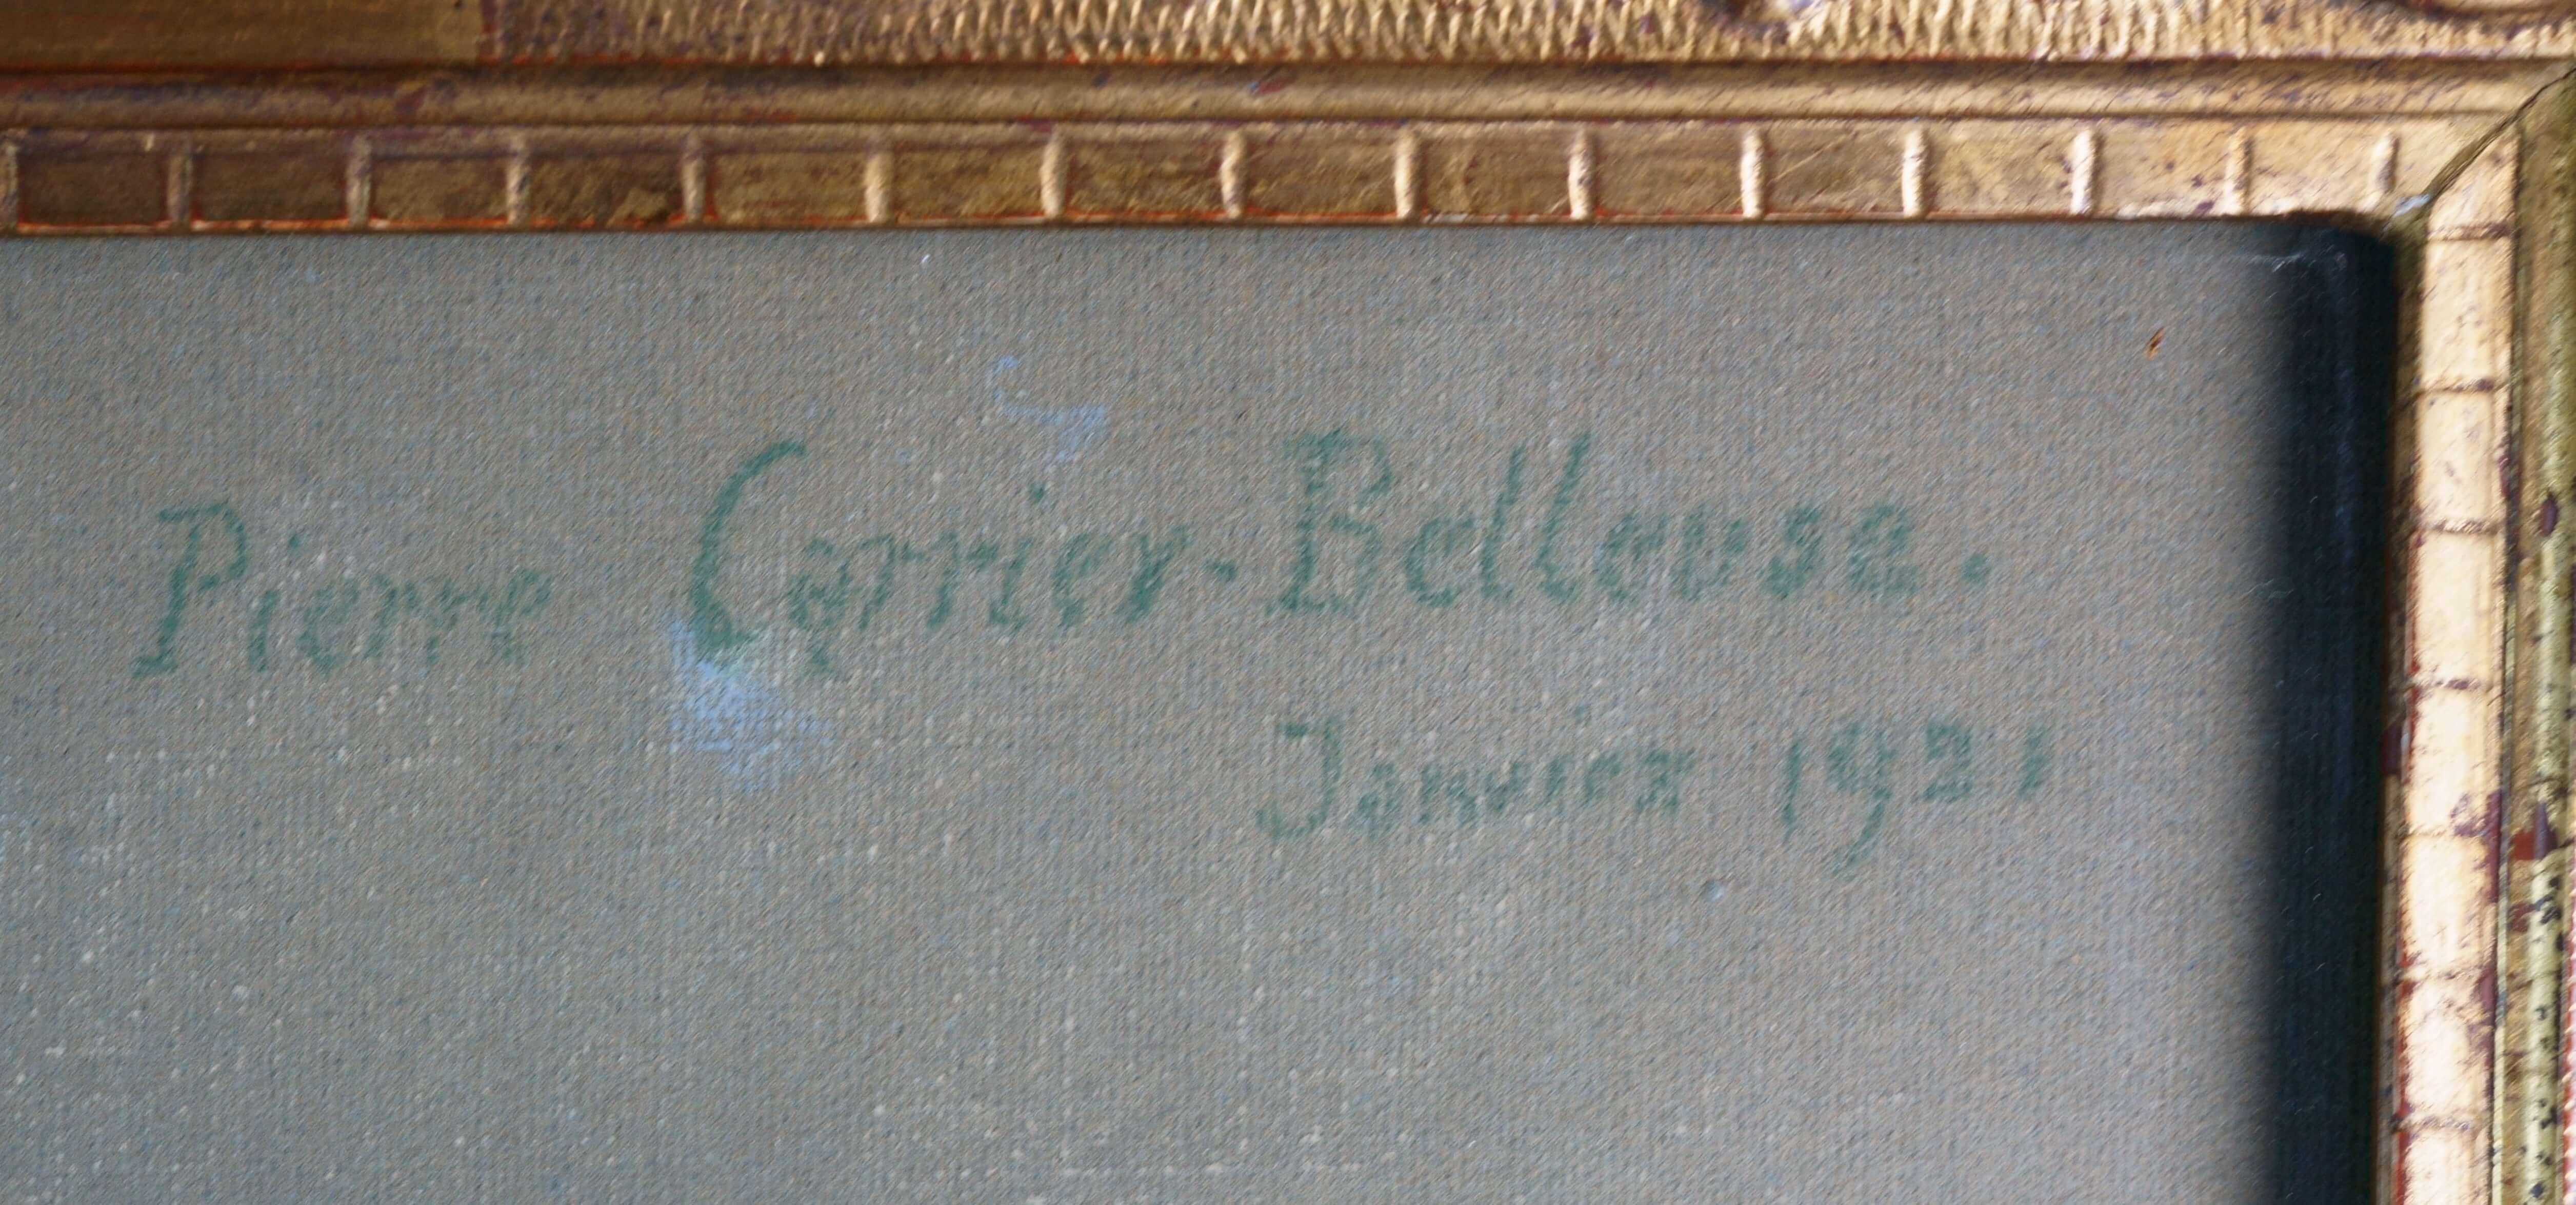 Pierre Carrier-Belleuse.
Janvier 1921